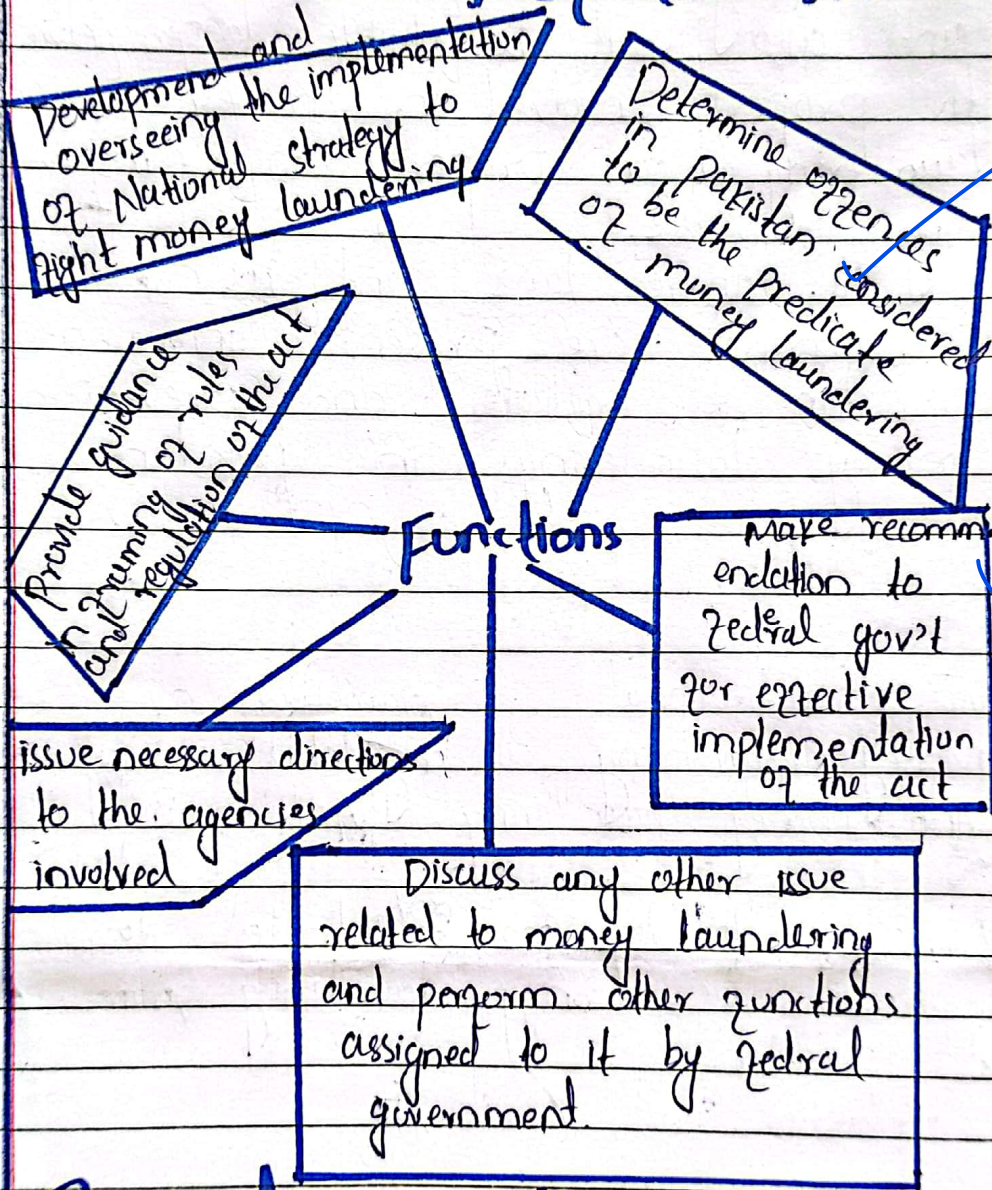 Development and
overseeing the implementation
of National strategy to
fight money laundering
Determine offences
in pakistan considered
to be the predicate
of money laundering
Provide guidance
in framing of rules
and regulation of the act
Functions
Make recomm
endation to
federal gov't
for effective
implementation
of the act
issue necessary directions
to the agencies
involved
Discuss any other issue
related to money laundering
and perform other functions
assigned to it by fedral
government.